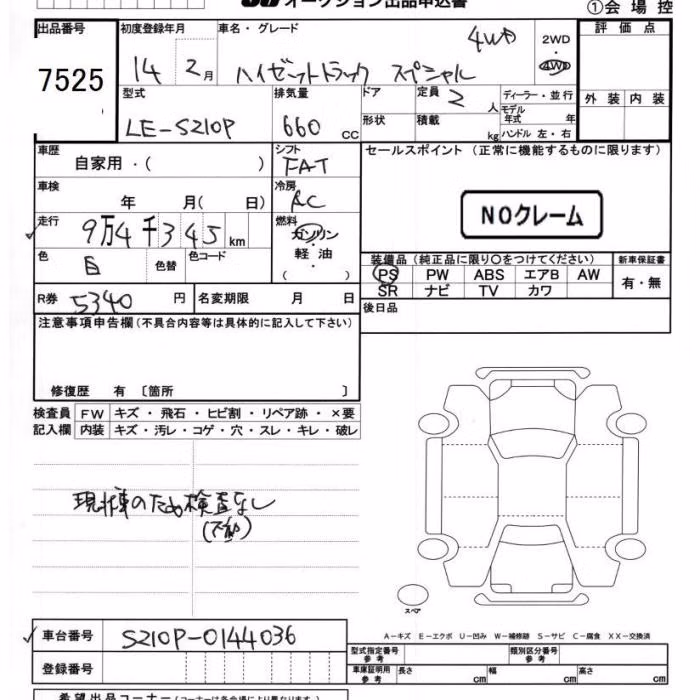 オークション出品申込書
①会場控
出品番号 7525
初度登録年月 14 2月
車名・グレード 4WD
ハイゼットトラック スペシャル
2WD・4WD
評価点
外装 内装
型式 LE-S210P
排気量 660 cc
ドア 形状
定員 2人
積載 kg
ディーラー・並行
モデル年式 年
ハンドル 左・右
車歴 自家用・( )
シフト FAT
セールスポイント(正常に機能するものに限ります)
NOクレーム
車検 年 月( 日)
冷房 AC
走行 9万4千345km
燃料 ガソリン・軽油 ( )
色 白 色替 色コード
装備品(純正品に限り○をつけてください) 新車保証書
PS PW ABS エアB AW 有・無
SR ナビ TV カワ
R券 5340円 名変期限 月 日
後日品
注意事項申告欄(不具合内容等は具体的に記入して下さい)
修復歴 有 〔箇所 〕
検査員 FW キズ・飛石・ヒビ割・リペア跡・×要
記入欄 内装 キズ・汚レ・コゲ・穴・スレ・キレ・破レ
現状のため検査なし
(不動)
スペア
A-キズ E-エクボ U-凹み W-補修跡 S-サビ C-腐食 XX-交換済
車台番号 S210P-0144036
型式指定番号 参考 類別区分番号 参考
登録番号
車庫証明用 参考 長さ cm 幅 cm 高さ cm
希望出品コーナー(コーナーは各会場により異なります。)